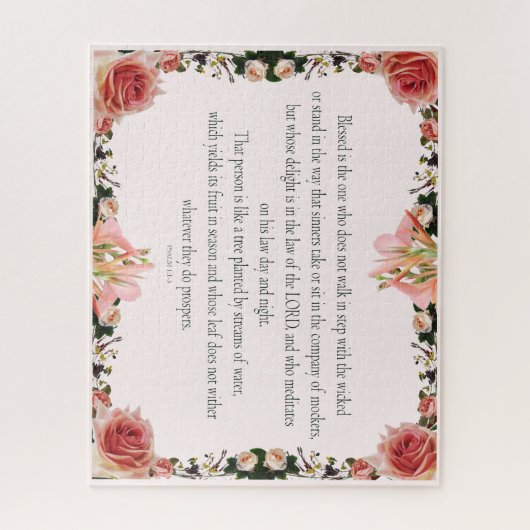 Blessed is the one who does not walk in step with the wicked
or stand in the way that sinners take or sit in the company of mockers,
but whose delight is in the law of the LORD, and who meditates
on his law day and night.
That person is like a tree planted by streams of water,
which yields its fruit in season and whose leaf does not wither
whatever they do prospers.
PSALM 1:1-3